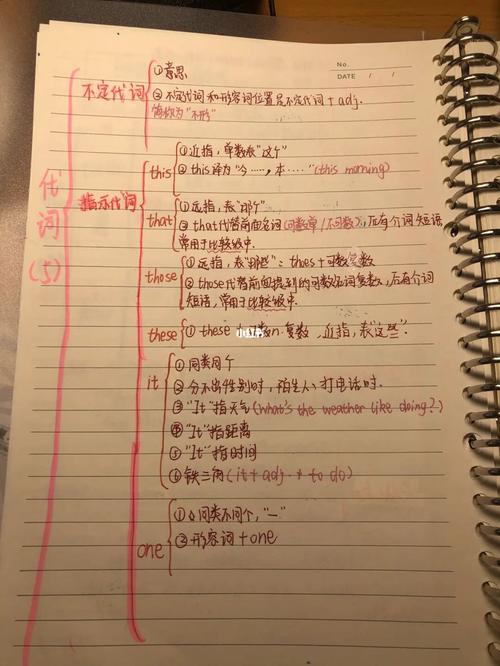 No.
DATE / /
代词(5)
不定代词
①意思
②不定代词和形容词位置是不定代词+adj.
简称为"不形"
指示代词
this
①近指,单数表"这个"
②this译为"今……,本……"(this morning)
that
①远指,表"那个"
②that代替前面名词(可数单/不可数),后有介词短语,
常用于比较级中.
those
①远指,表"那些":thoes+可数复数
②those代替前面提到的可数名词复数,后有介词
短语,常用于比较级中.
these
①these+可数n.复数,近指,表"这些".
it
①同类同个
②分不出性别时,陌生人,打电话时.
③"It"指天气(what's the weather like doing?)
④"It"指距离
⑤"It"指时间
⑥铁三角(it+adj.+to do)
one
①同类不同个,"一"
②形容词+one
小红书